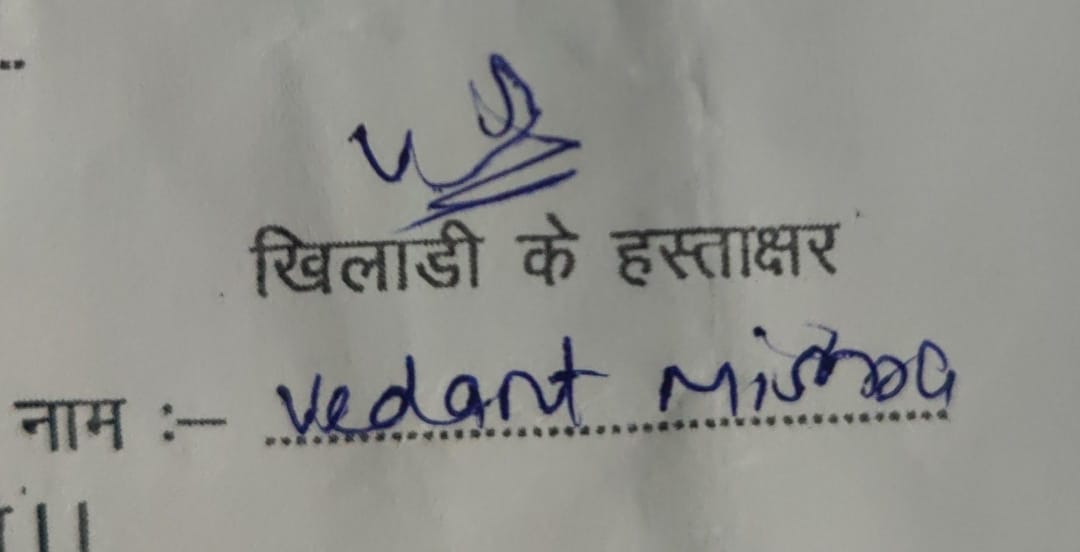 खिलाडी के हस्ताक्षर
नाम :– Vedant Mishra